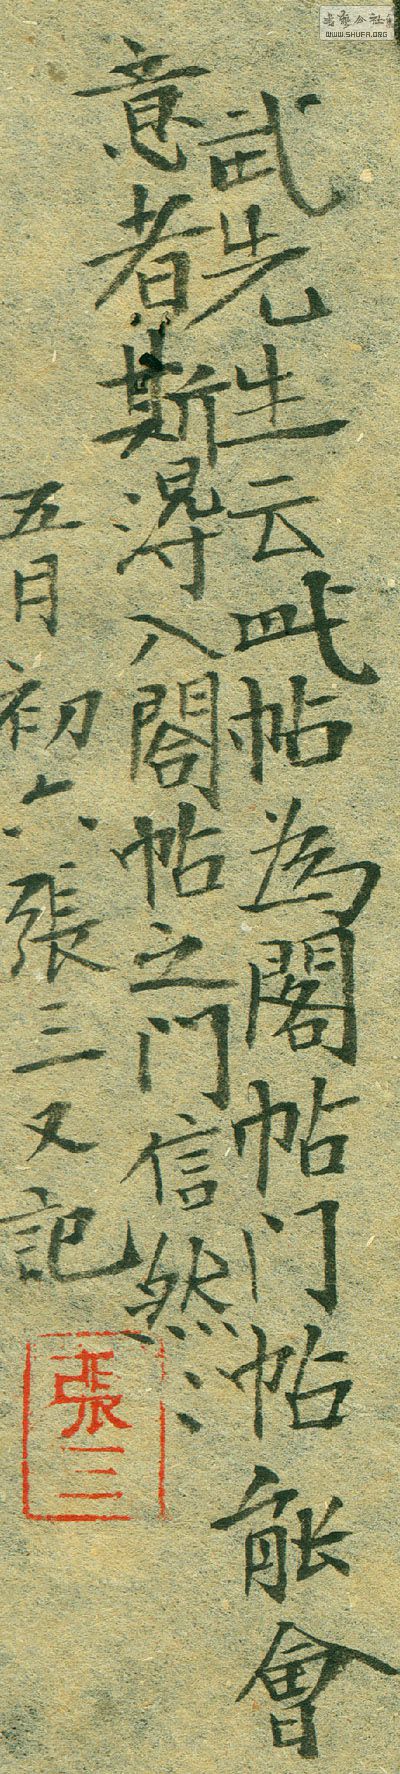 武先生云此帖为閣帖门帖能會
意者斯得入閣帖之門信然〻
五月初六張三又記
張三
書藝公社
WWW.SHUFA.ORG